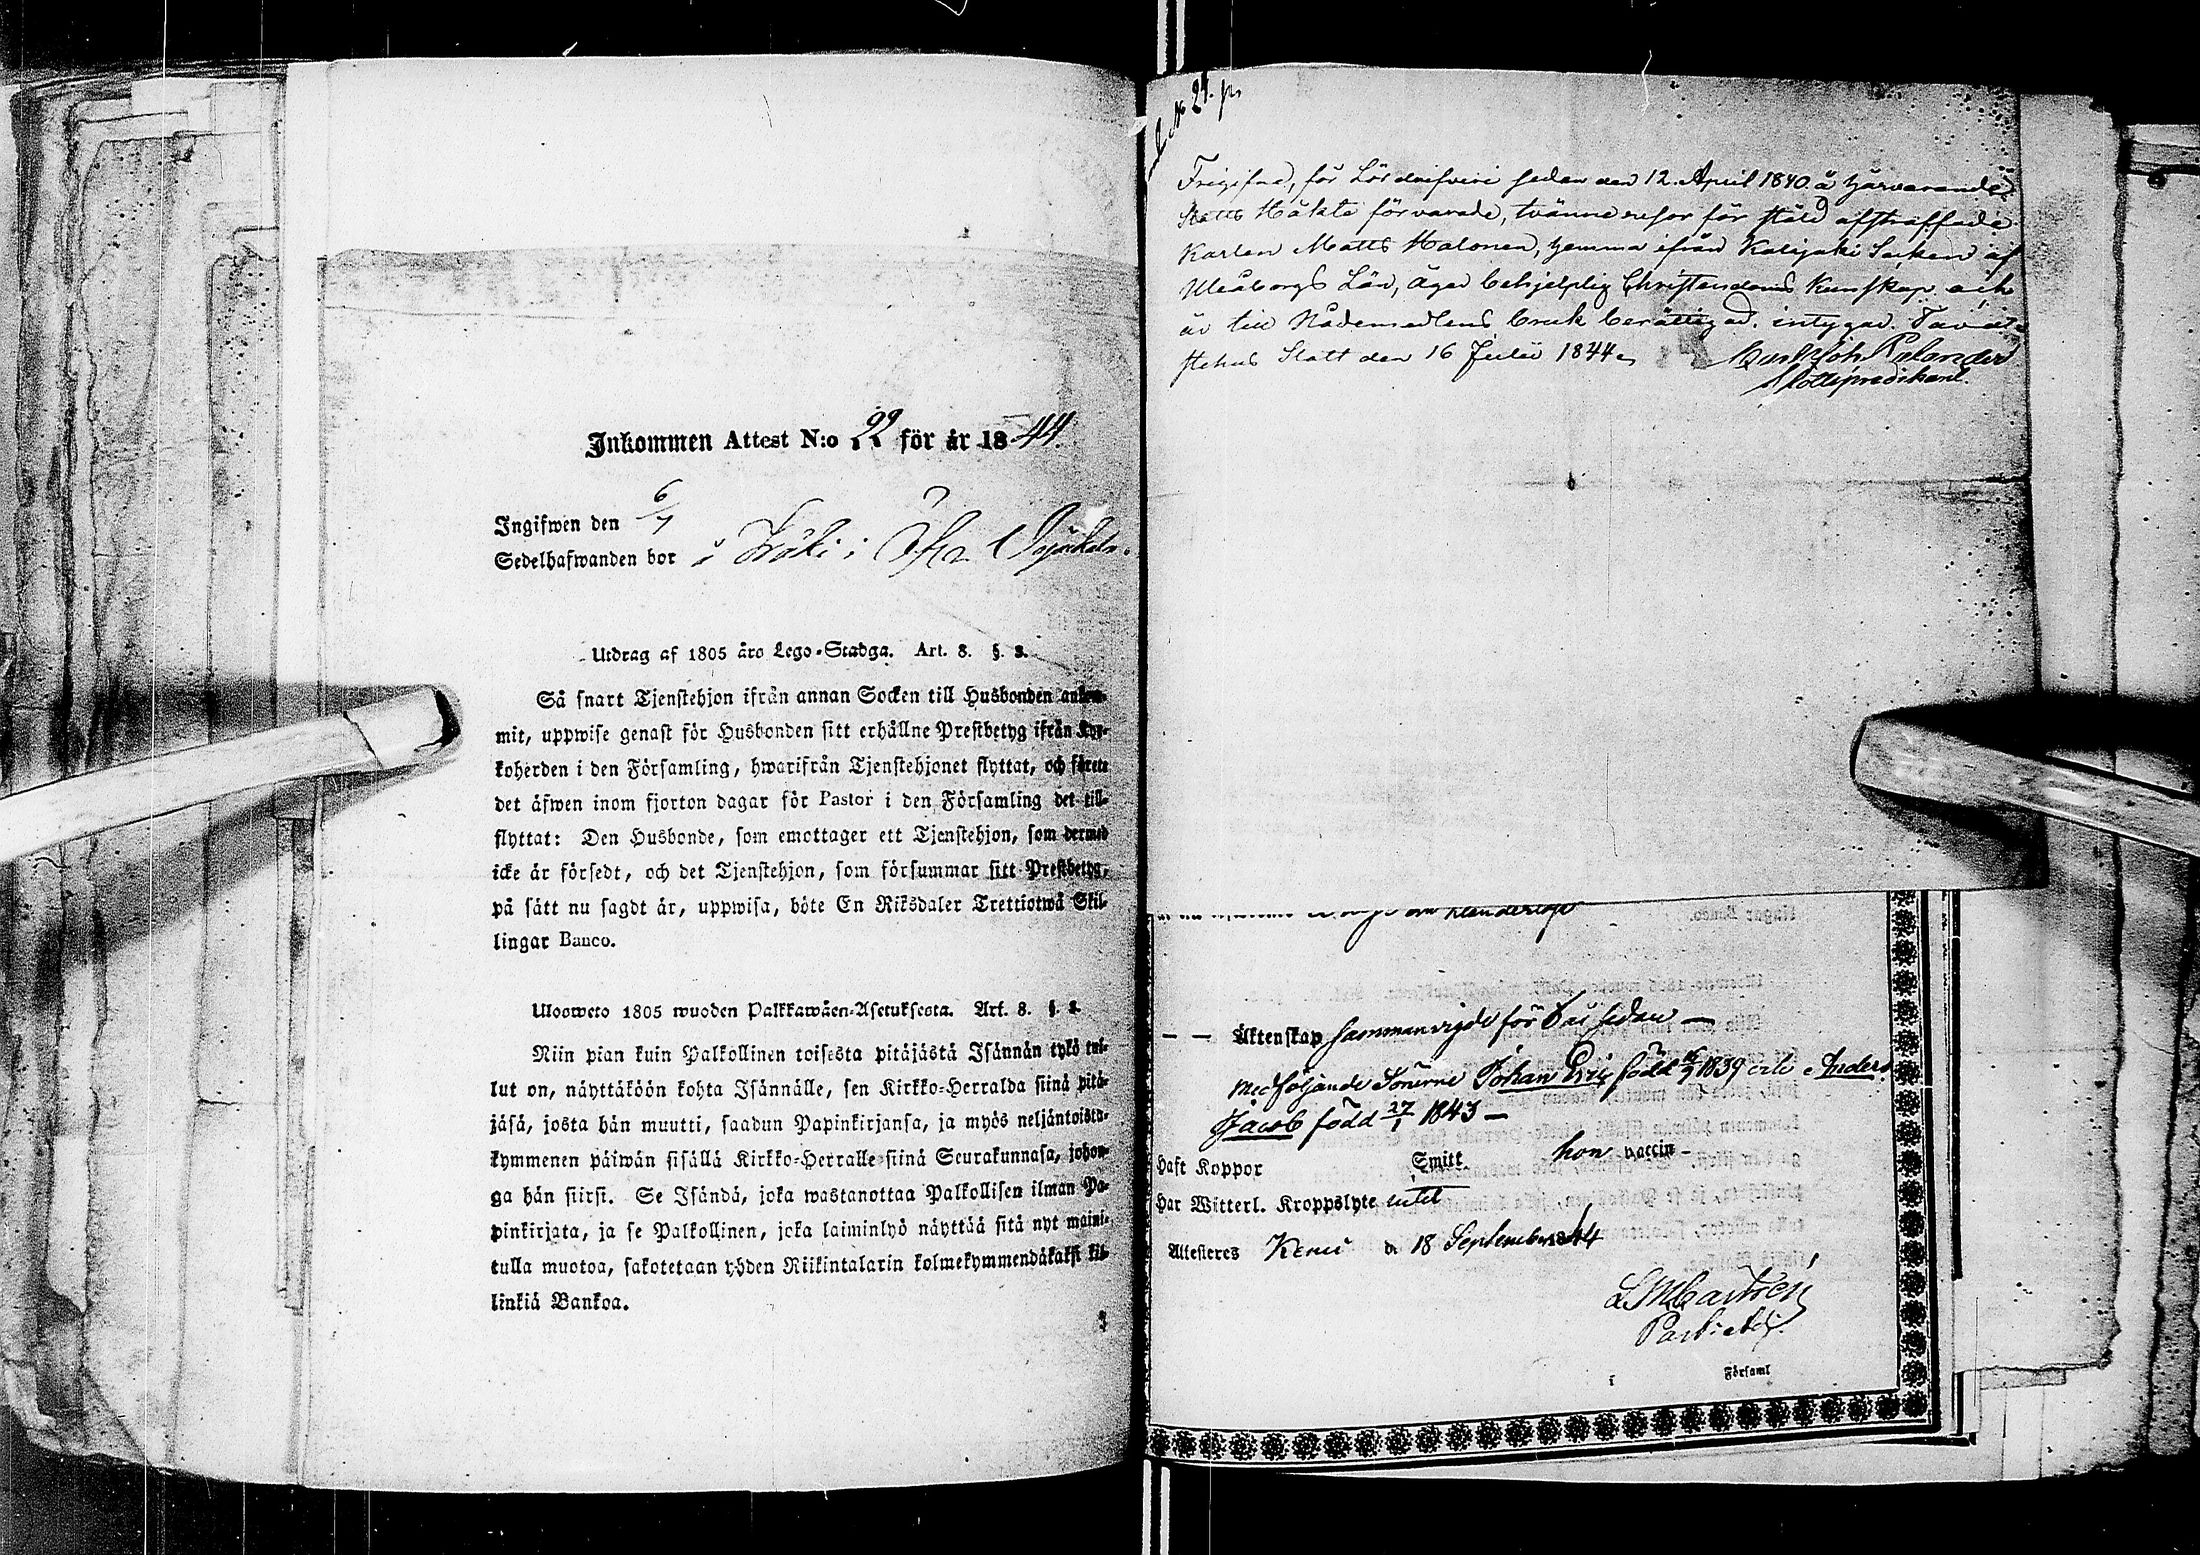 Inkommen Attest N:o 22 för år 1844.
Ingifwen den 6/7
Sedelhafwanden bor i Träki i Öfra
Utdrag af 1805 års Lego-Stadga. Art. 8. §. 3.
Så snart Tjenstehjon ifrån annan Socken till Husbonden ankom-
mit, uppwise genast för Husbonden sitt erhållne Prestbetyg ifrån Kyr-
koherden i den Församling, hwarifrån Tjenstehjonet flyttat, och förete
det äfwen inom fjorton dagar för Pastor i den Församling det till-
flyttat: Den Husbonde, som emottager ett Tjenstehjon, som dermed
icke är försedt, och det Tjenstehjon, som försummar sitt Prestbetyg,
på sätt nu sagdt är, uppwisa, böte En Riksdaler Trettiotwå Skil-
lingar Banco.
Ulosweto 1805 wuoden Palkkawäen-Asetuksesta. Art. 8. §. 3.
Niin pian kuin Palkollinen toisesta pitäjästä Isännän tykö tul-
lut on, näyttäköön kohta Isännälle, sen Kirkko-Herralda siinä pitä-
jäsä, josta hän muutti, saadun Papinkirjansa, ja myös neljäntoista-
kymmenen päiwän sisällä Kirkko-Herralle siinä Seurakunnasa, johon-
ga hän siirsi. Se Isändä, joka wastanottaa Palkollisen ilman Pa-
pinkirjata, ja se Palkollinen, joka laiminlyö näyttää sitä nyt maini-
tulla muotoa, sakotetaan yhden Riikintalarin kolmekymmendäkaksi kil-
linkiä Bankoa.
24.
Frigifne, för Lösdrifveri sedan den 12. April 1840 å härvarande
Slotts Häkte förvarade, tvänne resor för stöld afstraffade
Karlen Matts Halonen, hemma ifrån Kalijoki Socken af
Uleåborgs Län, äger behjelplig Christendoms Kunskap och
är till Nådemedlens bruk berättigad, intygar. Tavast-
stehus Slott den 16 Julii 1844.
Slottspredikant.
Äktenskap sammanvigde för 6 år sedan —
Medföljande Sönerne Johan Eric född 1839 och Anders
Jacob född 27/1 1843 —
Haft Koppor Smitt. hon vaccin —
Har Witterl. Kroppslyte intet
Attesteres Kemi d. 18 September 1844
Församl